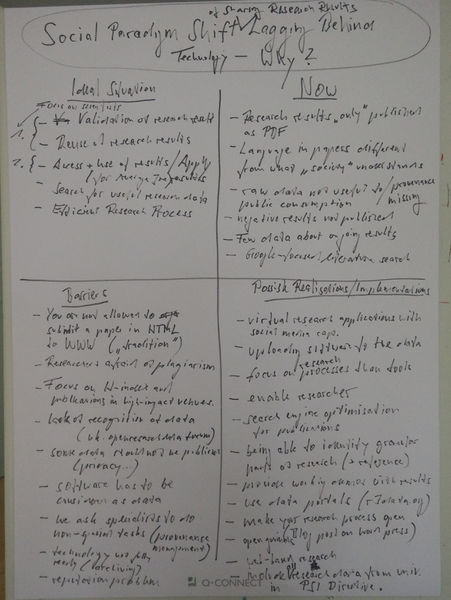 of Sharing Research Results
Social Paradigm Shift Lagging Behind
Technology – Why?
Ideal Situation
Focus on scientists
1. – Validation of research result
– Reuse of research results
2. – Access + Use of results / Apply
for results
– Search for useful research data
– Efficient Research Process
Now
– Research results "only" published
as PDF
– Language in papers different
from what "society" understands
– raw data not useful to / provenance
public consumption missing
– negative results not published
– Few data about ongoing results
– Google-focused literature search
Barriers
– You are not allowed to
submit a paper in HTML
to WWW ("tradition")
– Researchers afraid of plagiarism
– Focus on H-index and
publications in high-impact venues.
– lack of recognition of data
– some data should not be published
(privacy...)
– software has to be
considered as data
– we ask specialists to do
non-special tasks (provenance
management)
– technology not fully
ready (archiving)
– reputation problem
Possible Realizations/Implementations
– virtual research applications with
social media caps.
– uploading software to the data
– focus on research processes than tools
– enable researcher
– search engine optimisation
for publications
– being able to identify granular
parts of research (→ reference)
– provide working demos with results
– use data portals
– make your research process open
(Blog post on word press)
– research
– include "research data from univ.
in PSI Directive.
Q-CONNECT